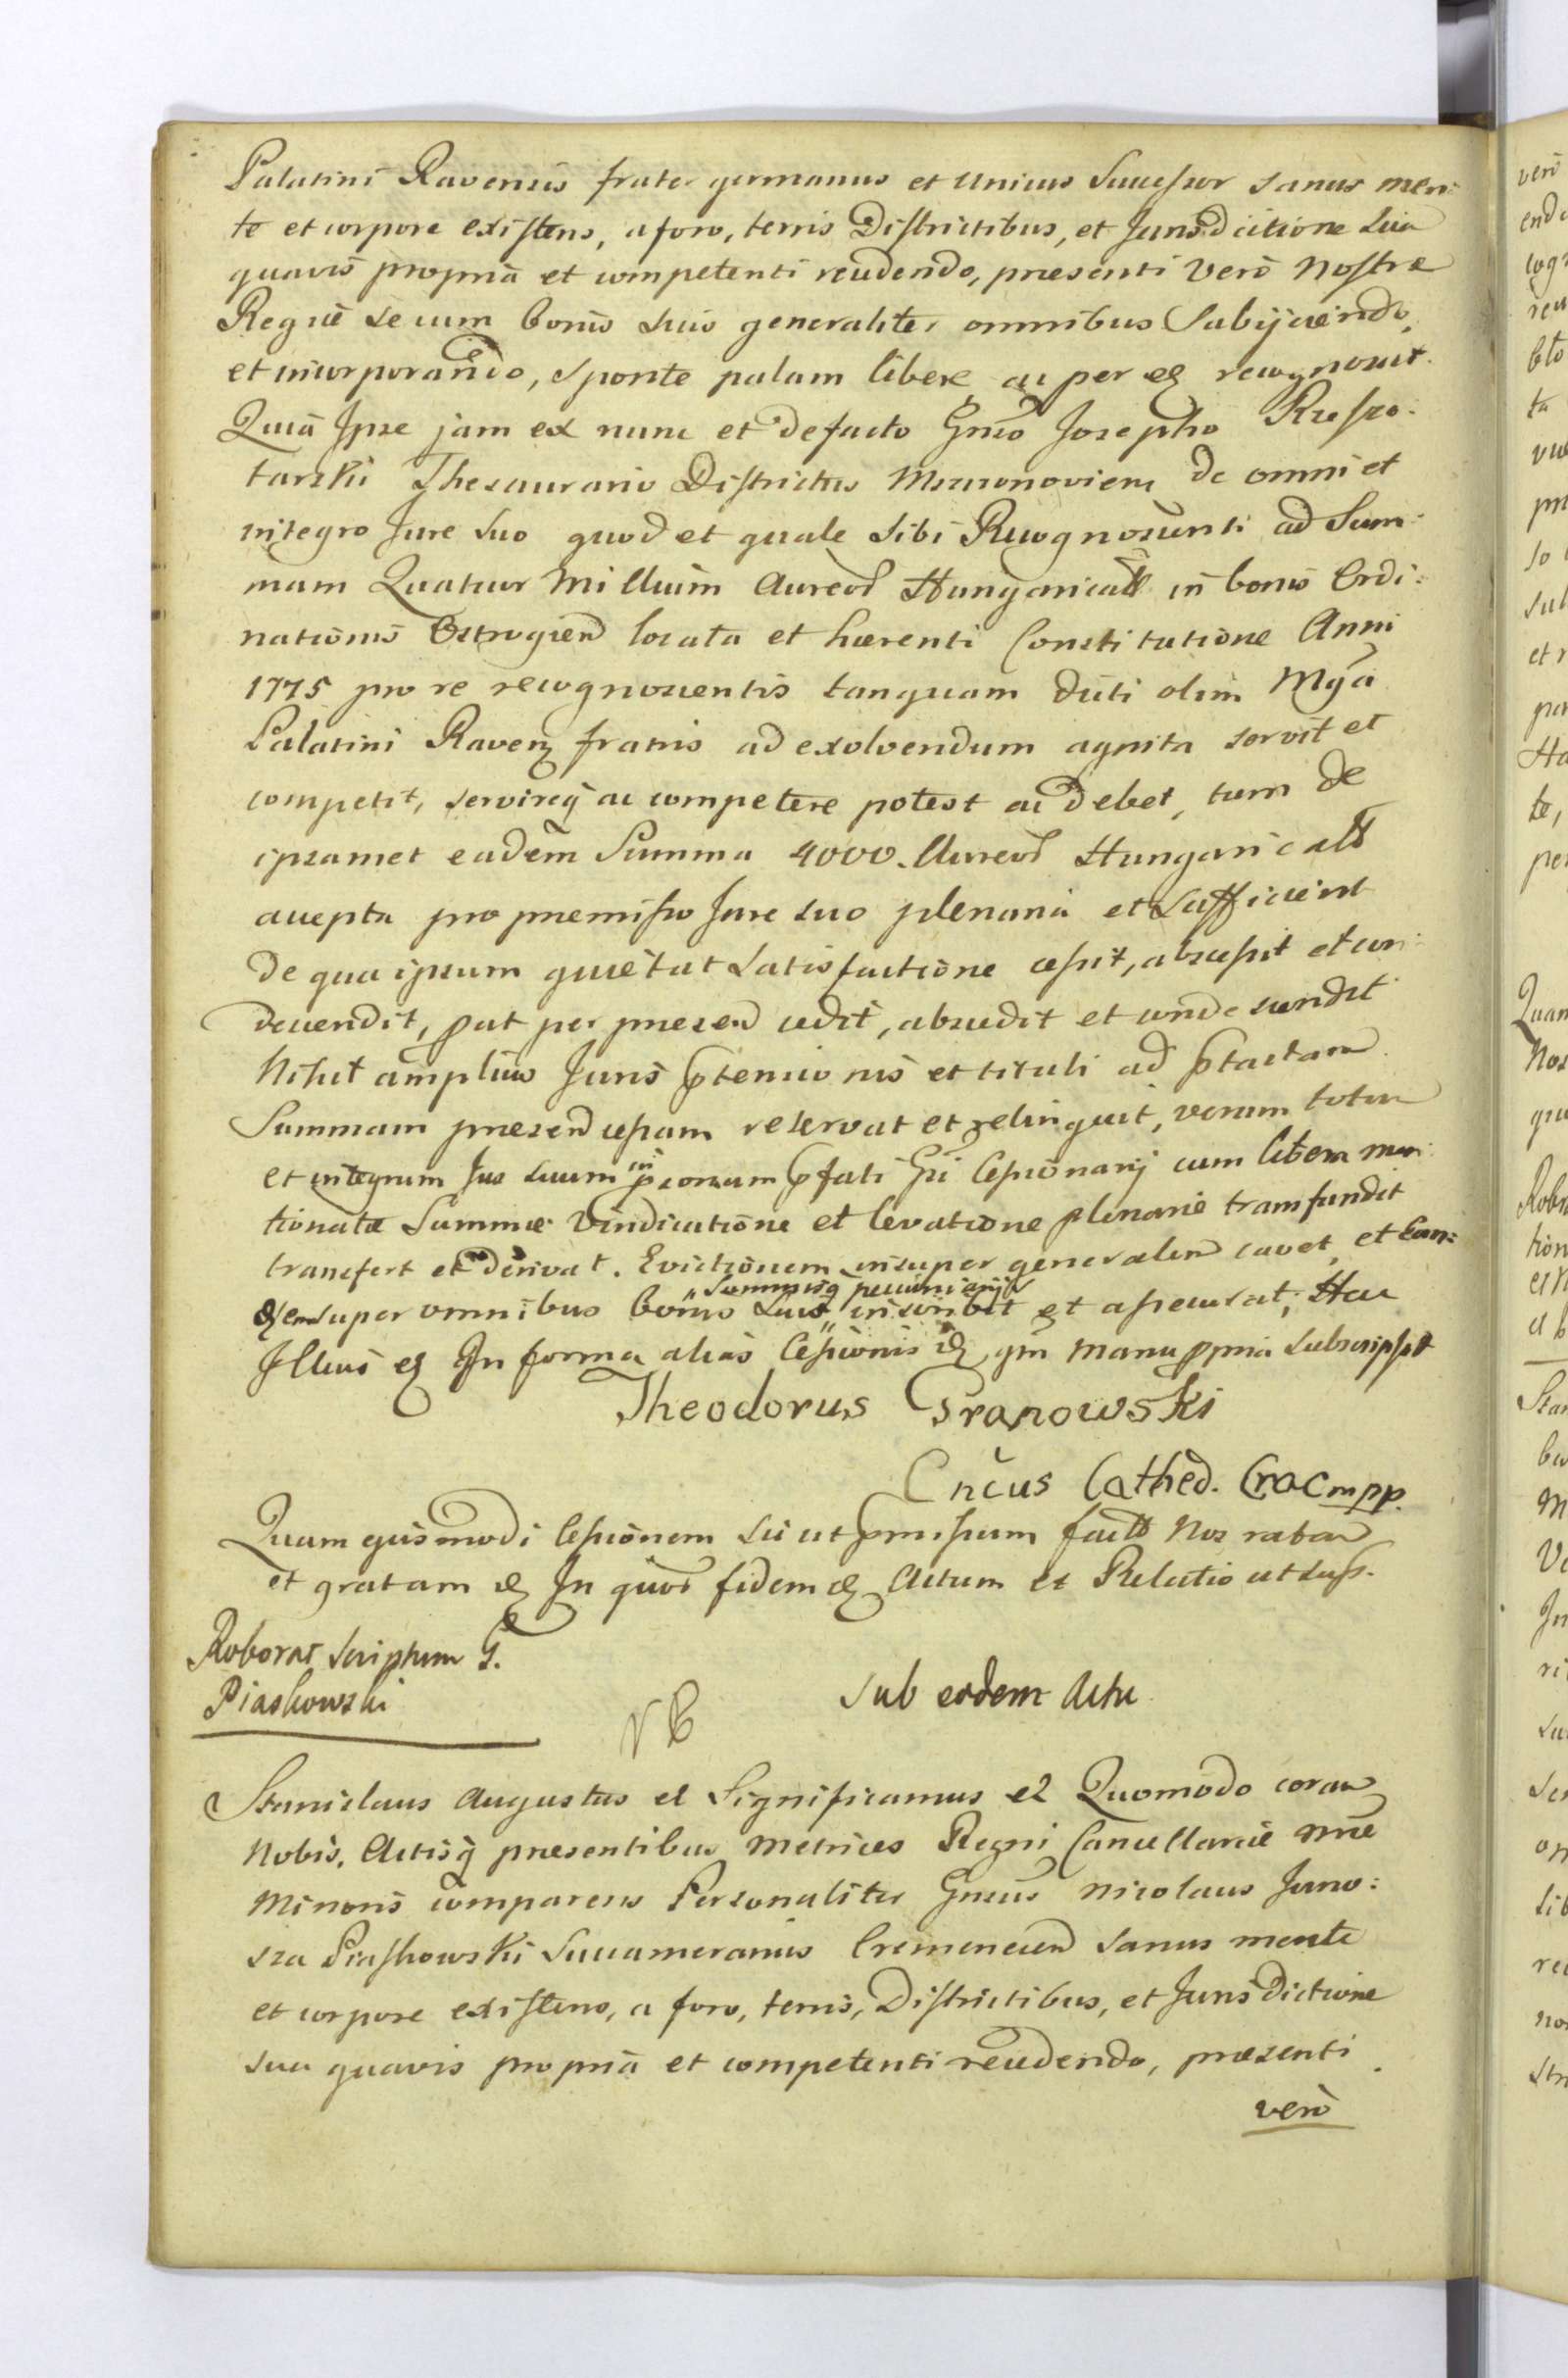 Palatini Ravensis frater germanus et Unicus Successor sanus men:
te et corpore existens, a foro, terris Districtibus, et Jurisdicitione sua
quavis propriâ et competenti recedendo, præsenti verò Nostræ
Regiæ se cum bonis suis generaliter omnibus Subijciendo,
et incorporando, sponte palam libere ac per eg recognovit.
Quiâ Ipse jam ex nunc et de facto Gnso Josepho Rzeszo:
tarski Thesaurario Districtus Mozuronoviens de omni et
integro Jure suo quod et quale sibi Recognoscenti ad Sum:
mam Quatuor Millium Aureor Hungaricall in bonis Ordi:
nationis Ostrogien locata et hærenti Constitutione Anni
1775 pro re recognoscentis tanquam dicti olim Mgci
Palatini Raven fratris ad exolvendum agnita servit et
competit, servireq ac competere potest ac debet, tum de
ipsamet eadem Summa 4000. Aureor Hungaricall
accepta pro præmisso Jure suo plenaria et sufficient
de qua ipsum quietat satisfactione cessit, abscessit et con:
decendit, pat per præsen cedit, abscedit et condescendit
Nihil amplius Juris ptensionis et tituli ad ptactam
Summam præsen cessam reservat et relinquit, verum totum
et integrum Jus suum in psonam pfati Gsi Cessionarij cum libera men:
tionatæ Summæ Vindicatione et levatione plenarie transfundit
transfert et derivat. Evictionem insuper generalem cavet, et Ean:
dem super omnibus bonis suis „Summisq pecuniarijs„ inscribit et assecurat; Hac
Illius eg In forma aliàs Cessionis eg qm manu ppria subscripsit
Theodorus Granowski
Cncus Cathed. Crac mpp.
Quam ejusmodi Cessionem sic ut pmissum factt Nos ratam
et gratam eg In quor fidem eg Actum et Relatio ut sup.
Roborat scriptum G.
Piaskowski
Sub eodem Actu
NB
Stanislaus Augustus et Significamus et Quomodo coram
Nobis, Actisq præsentibus Metrices Regni Cancellariæ Nræ
Minoris comparens Personaliter Gnsus Nicolaus Juno:
sza Piaskowski Succamerarius Cremenecen sanus mente
et corpore existens, a foro, terris, Districtibus, et Jurisdictione
sua quavis propriâ et competenti recedendo, præsenti
verò